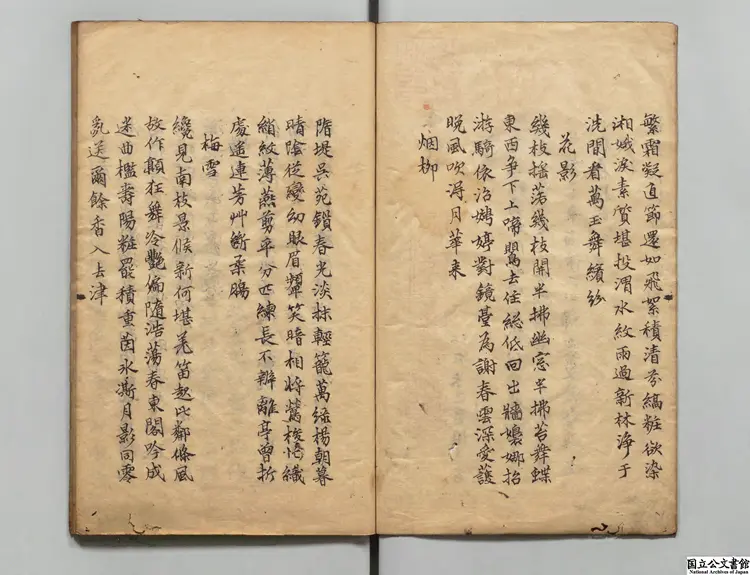 繁霜凝直節還如飛絮積清芬縞粧欲染
湘娥淚素質堪投渭水紋雨過新林淨于
洗閒看萬玉舞繽紛
花影
幾枝搖蕩幾枝開半拂幽窓半拂苔舞蝶
東西爭下上啼鶯去住総低回出牆嬝娜招
游騎依沼娉婷對鏡臺為謝春雲深愛護
晚風吹淂月華来
烟柳
隋堤吳苑鎖春光淡抹輕籠萬綠楊朝暮
晴陰從變幻眼眉顰笑暗相將鶯梭惜織
綃紋薄燕剪平分匹練長不辨離亭曾折
處遙連芳艸斷柔腸
梅雪
纔見南枝景候新何堪羌笛起比鄰條風
故作顛狂舞冷艷偏隨浩蕩春東閣吟成
迷曲檻壽陽粧罷積重茵氷澌月影同零
亂送爾餘香入去津
国立公文書館
National Archives of Japan